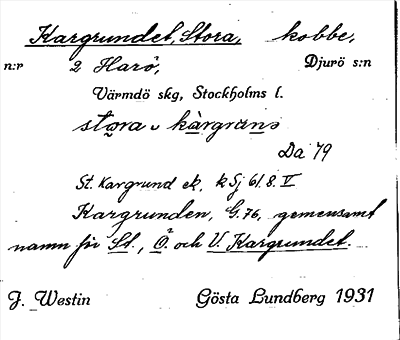 Kargrundet, Stora, kobbe,
n:r 2 Harö, Djurö s:n
Värmdö skg, Stockholms l.
stora
Da 79
St. Kargrund ek, kSj 61.8. V
Kargrunden, G.76, gemensamt
namn för St., Ö. och V. Kargrundet.
J. Westin Gösta Lundberg 1931